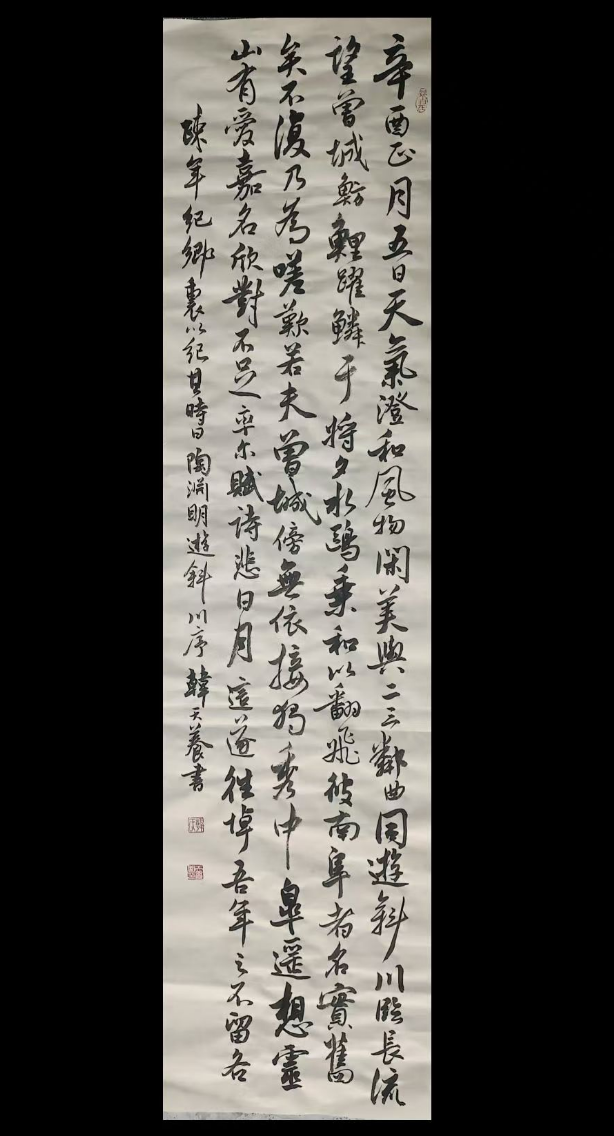 辛酉正月五日天氣澄和風物閑美與二三鄰曲同遊斜川臨長流
望曾城魴鯉躍鱗于將夕水鷗乘和以翻飛彼南阜者名實舊
矣不復乃為嗟歎若夫曾城傍無依接獨秀中皐遥想靈
山有愛嘉名欣對不足率尔賦詩悲日月這遂徃悼吾年之不留各
疎年紀鄉裏以紀其時日陶淵明遊斜川序韓天養書